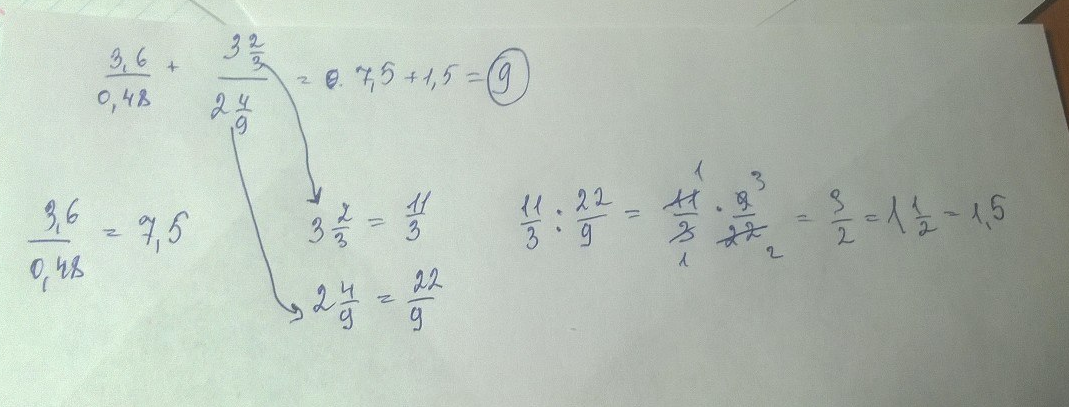 3,6/0,48 + 3 2/3 / 2 4/9 = 0. 7,5 + 1,5 = 9
3,6/0,48 = 7,5
3 2/3 = 11/3
2 4/9 = 22/9
11/3 : 22/9 = 11/3 · 9/22 = 3/2 = 1 1/2 = 1,5
1 3
1 2